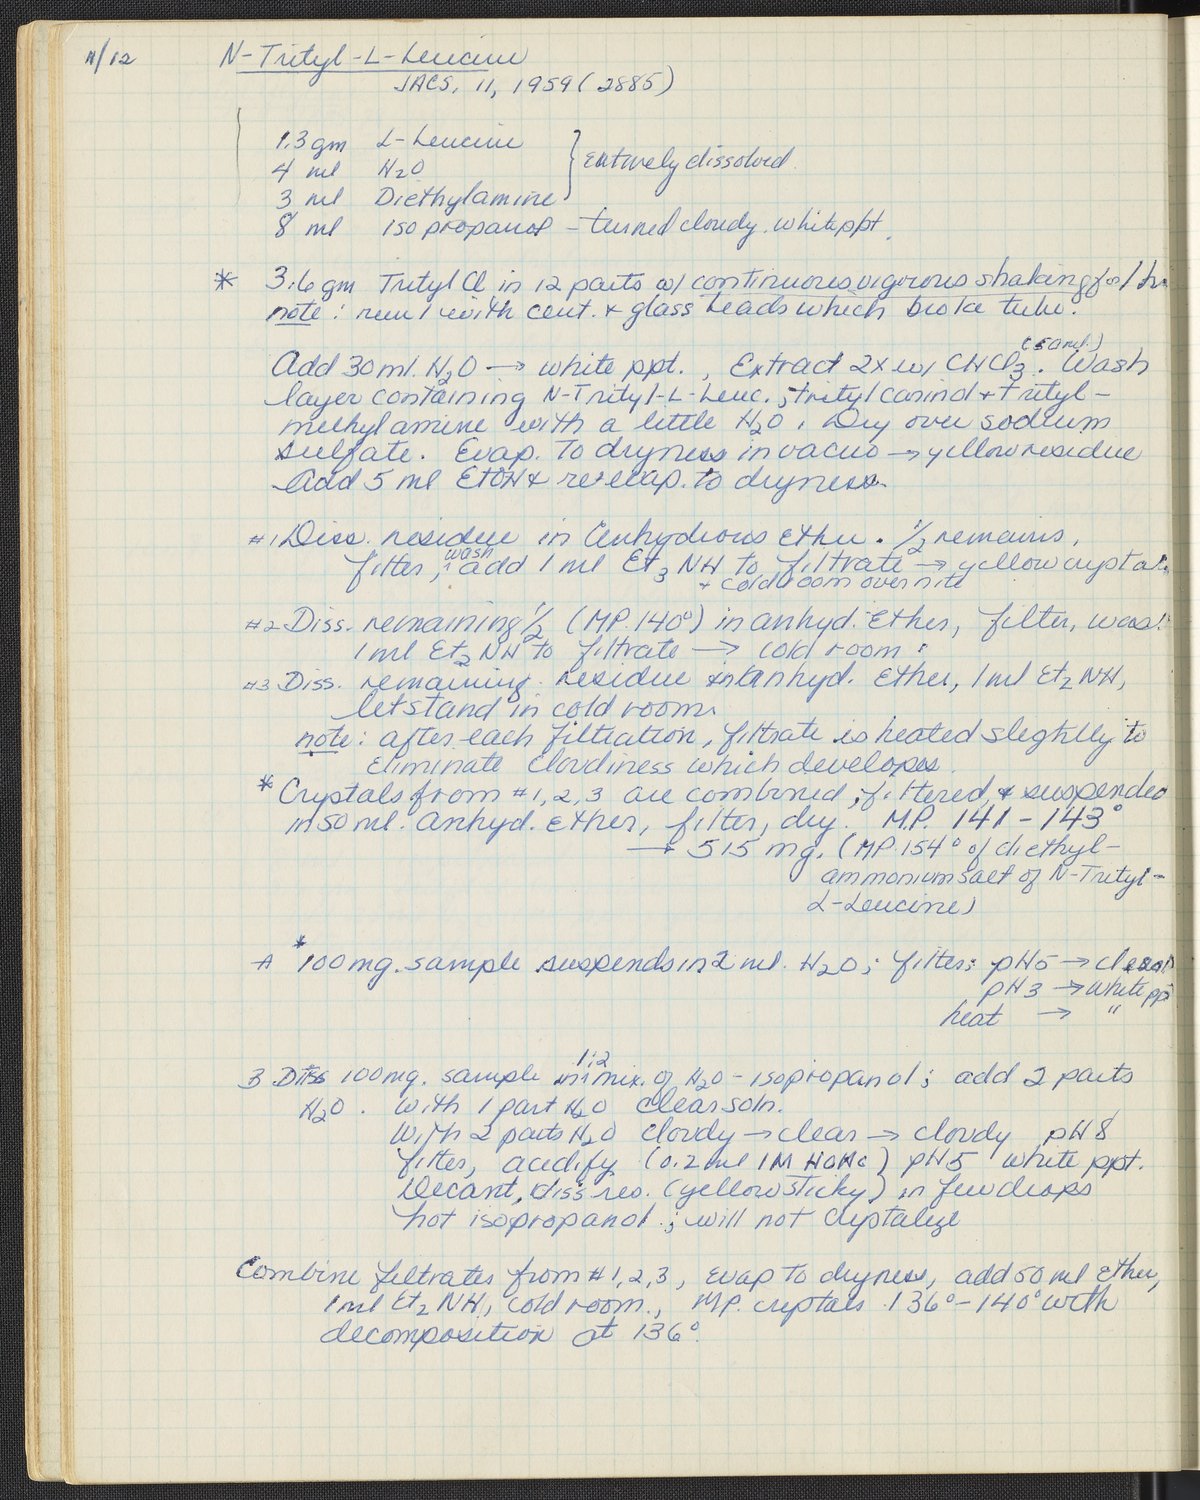 11/12 N-Trityl-L-Leucine
JACS, 11, 1959 (2885)
1.3 gm L-Leucine
4 ml H2O } entirely dissolved.
3 ml Diethylamine
8 ml isopropanol - turned cloudy. white ppt.
* 3.6 gm Trityl Cl in 12 parts w/ continuous vigorous shaking for 1 hr
note: run 1 with cent. & glass beads which broke tube.
(50 ml.)
Add 30 ml. H2O → white ppt., Extract 2x w/ CHCl3. Wash
layer containing N-Trityl-L-Leuc.; trityl carinol + trityl-
methylamine with a little H2O. Dry over sodium
sulfate. Evap. To dryness in vacuo → yellow residue
Add 5 ml EtOH & re-evap. to dryness.
#1 Diss. residue in Anhydrous Ether. 1/2 remains.
filter, wash; add 1 ml Et3 NH to filtrate → yellow crystals
+ cold room over nite
#2 Diss. remaining 1/2 (MP. 140°) in anhyd. Ether, filter, wash
1 ml Et2 NH to filtrate → cold room.
#3 Diss. remaining residue in Anhyd. Ether, 1 ml Et2 NH,
let stand in cold room.
note: after each filtration, filtrate is heated slightly to
eliminate cloudiness which develops.
* Crystals from #1,2,3 are combined, filtered, & suspended
in 50 ml. Anhyd. Ether, filter, dry. M.P. 141-143°
→ 515 mg. (MP. 154° of diethyl-
ammonium salt of N-Trityl-
L-Leucine)
A * 100 mg. sample suspends in 2 ml. H2O; filter; pH5 → clear
pH3 → white ppt
heat → "
B Diss 100 mg. sample in 1:2 mix. of H2O - isopropanol; add 2 parts
H2O. With 1 part H2O clear soln.
With 2 parts H2O cloudy → clear → cloudy pH 8
filter, acidify (0.2 ml 1M HOAc) pH5 white ppt.
Decant, diss res. (yellow sticky) in few drops
hot isopropanol; will not crystalize
Combine filtrates from #1,2,3, Evap To dryness, add 50 ml Ether,
1 ml Et2 NH, cold room., MP. crystals 136°-140° with
decomposition at 136°.